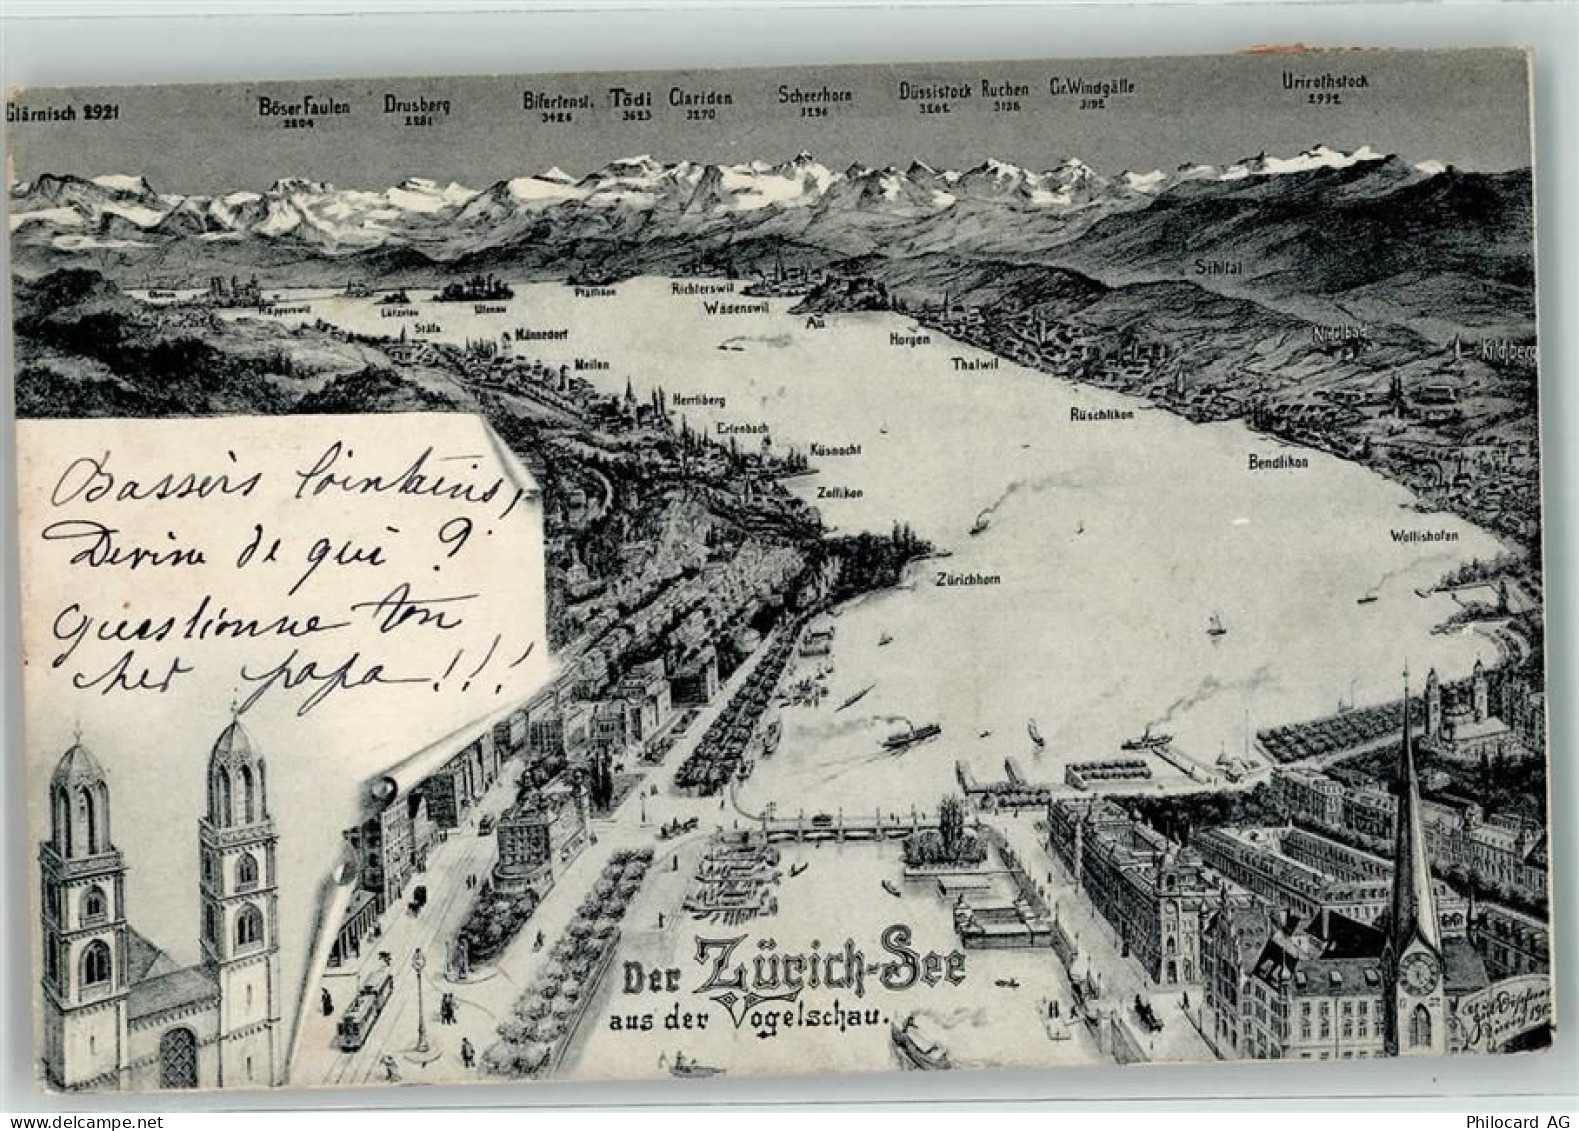 Glärnisch 2921
Böser Faulen
2804
Drusberg
2281
Bifertenst.
3426
Tödi
3623
Clariden
3270
Scheerhorn
3296
Düssistock
3262
Ruchen
3136
Gr. Windgälle
3192
Urirothstock
2932
Sihltal
Rapperswil
Lützelau
Ufenau
Pfäffikon
Richterswil
Wädenswil
Au
Stäfa
Männedorf
Horgen
Nidelbad
Kilchberg
Meilen
Thalwil
Herrliberg
Rüschlikon
Erlenbach
Küsnacht
Bendlikon
Zollikon
Wollishofen
Zürichhorn
Bassers lointains,
Devine de qui ?
questionne ton
cher papa !!!
Der Zürich-See
aus der Vogelschau.
delcampe.net
damocles-ak
Philocard AG